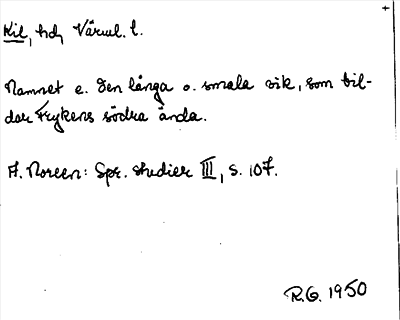 Kil, hd, Värml. l.
Namnet e. den långa o. smala vik, som bil-
dar Frykens södra ända.
A. Noreen: Spr. studier III, s. 107.
R.G. 1950